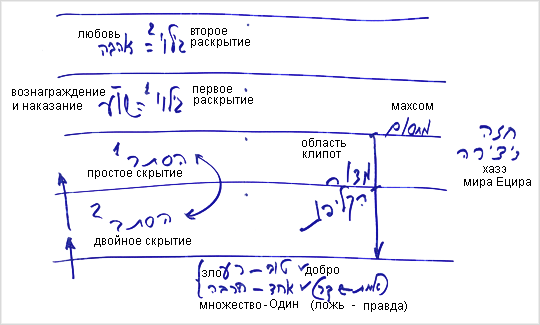 любовь אהבה = גלוי 2 второе раскрытие
вознаграждение и наказание שו"ע = גלוי 1 первое раскрытие
махсом
מחסום
חזה
יצירה
хазэ
мира Ецира
область
клипот
מדור
הקליפות
הסתר 1
простое скрытие
הסתר 2
двойное скрытие
зло רע – טוב добро
הרבה – אחד
множество - Один (ложь - правда)